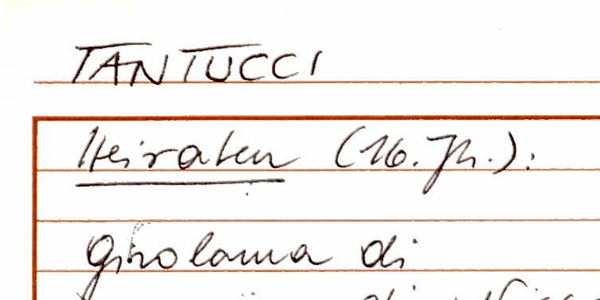 TANTUCCI
Heiraten (16. Jh.):
Girolama di
di